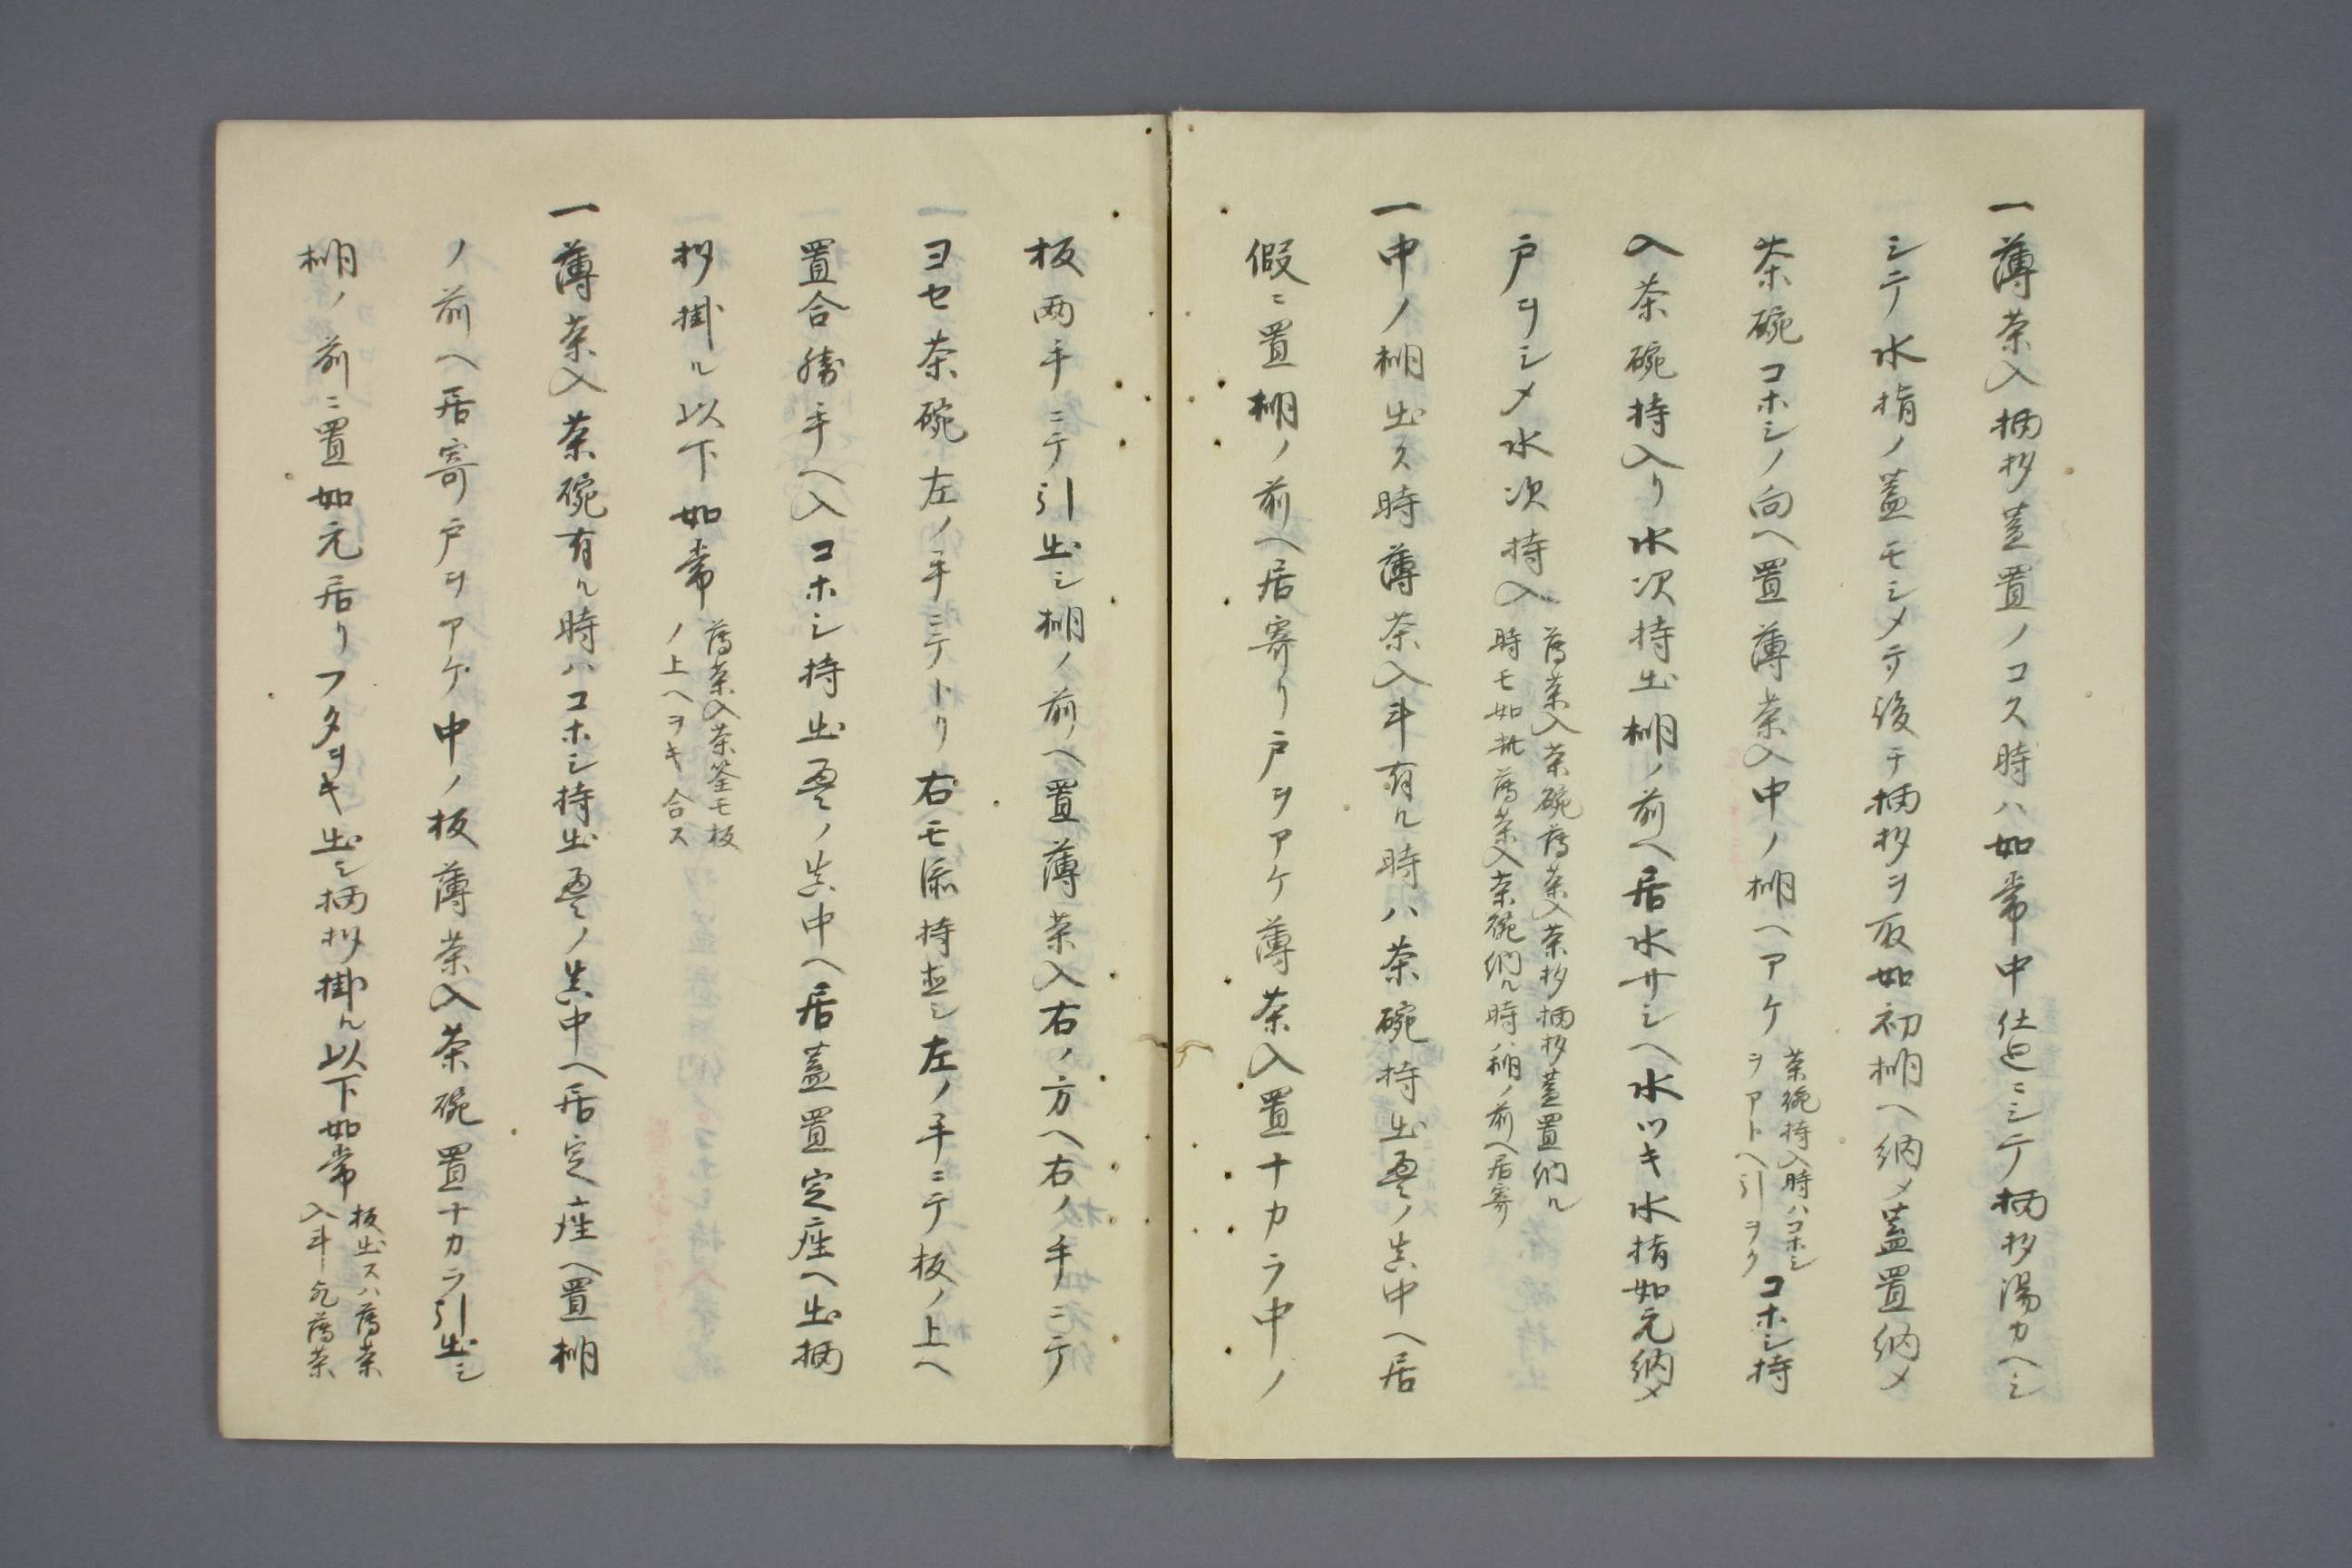 一薄茶入柄杓蓋置ノコス時ハ如常中仕廻ニシテ柄杓湯カヘシ
シテ水指ノ蓋モシメテ後チ柄杓ヲ取如初棚ヘ納メ蓋置納メ
茶碗コホシノ向ヘ置薄茶入中ノ棚ヘアケ
茶碗持入時ハコホシ
ヲアトヘ引ヲク
コホシ持
入茶碗持入リ水次持出棚ノ前ヘ居水サシヘ水ツキ水指如元納メ
戸ヲシメ水次持入
薄茶入茶碗薄茶入茶杓柄杓蓋置納ル
時モ如此薄茶入茶碗納ル時ハ棚ノ前ヘ居寄
一中ノ棚出ス時薄茶入斗有ル時ハ茶碗持出畳ノ真中ヘ居
假ニ置棚ノ前ヘ居寄リ戸ヲアケ薄茶入置ナカラ中ノ
板両手ニテ引出シ棚ノ前ヘ置薄茶入右ノ方ヘ右ノ手ニテ
ヨセ茶碗左ノ手ニテトリ右モ添持直シ左ノ手ニテ板ノ上ヘ
置合勝手ヘ入コホシ持出畳ノ真中ヘ居蓋置定座ヘ出柄
杓掛ル以下如常
薄茶入茶筌モ板
ノ上ヘヲキ合ス
一薄茶入茶碗有ル時ハコホシ持出畳ノ真中ヘ居定座ヘ置棚
ノ前ヘ居寄戸ヲアケ中ノ板薄茶入茶碗置ナカラ引出シ
棚ノ前ニ置如元居リフタヲキ出シ柄杓掛ル以下如常
板出スハ薄茶
入斗允薄茶